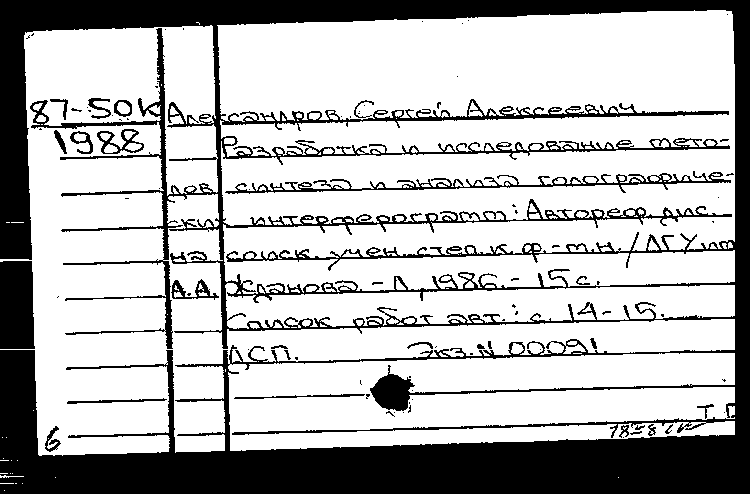 87-50К Александров, Сергей Алексеевич.
1988 Разработка и исследование мето-
дов синтеза и анализа голографиче-
ских интерферограмм: Автореф. дис.
на соиск. учен. степ. к. ф.-м.н. / ЛГУ им
А.А. Жданова. - Л., 1986. - 15 с.
Список работ авт.: с. 14-15.
ДСП. Экз. N 00091.
Т.
6